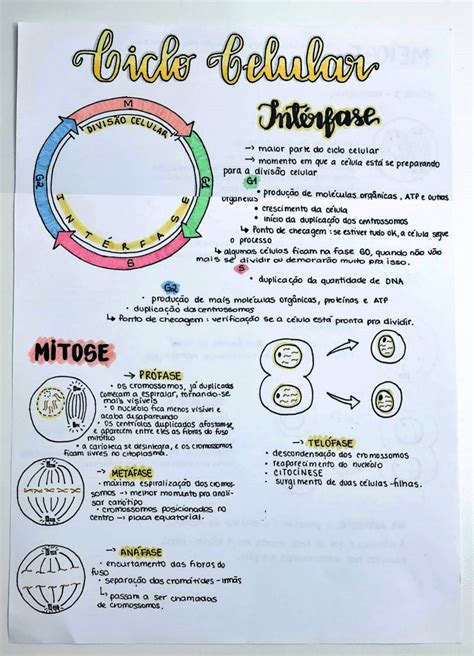 Ciclo Celular
M
DIVISÃO CELULAR
G2
G1
INTÉRFASE
S
Intérfase
→ maior parte do ciclo celular
→ momento em que a célula está se preparando
para a divisão celular
G1
• produção de moléculas orgânicas, ATP e outras
organelas
• crescimento da célula
• início da duplicação dos centrossomos
↳ Ponto de checagem: se estiver tudo ok, a célula segue
o processo
↳ algumas células ficam na fase G0, quando não vão
mais se dividir ou demorarão muito pra isso.
S
• duplicação da quantidade de DNA
G2
• produção de mais moléculas orgânicas, proteínas e ATP
• duplicação da centrossomos
↳ Ponto de checagem: verificação se a célula está pronta pra dividir.
MITOSE
→ PRÓFASE
• os cromossomos, já duplicados
começam a espiralar, tornando-se
mais visíveis
• o nucléolo fica menos visível e
acaba desaparecendo
• Os centríolos duplicados afastam-se
e aparecem entre eles as fibras do fuso
mitótico
• a carioteca se desintegra, e os cromossomos
ficam livres no citoplasma.
→ METÁFASE
• máxima espiralização dos cromos-
somos → melhor momento pra anali-
sar cariótipo
• cromossomos posicionados no
centro → placa equatorial.
→ ANÁFASE
• encurtamento das fibras do
fuso
• separação das cromátides-irmãs
↳ passam a ser chamadas
de cromossomos.
→ TELÓFASE
• descondensação dos cromossomos
• reaparecimento do nucléolo
• CITOCINESE
• surgimento de duas células-filhas.